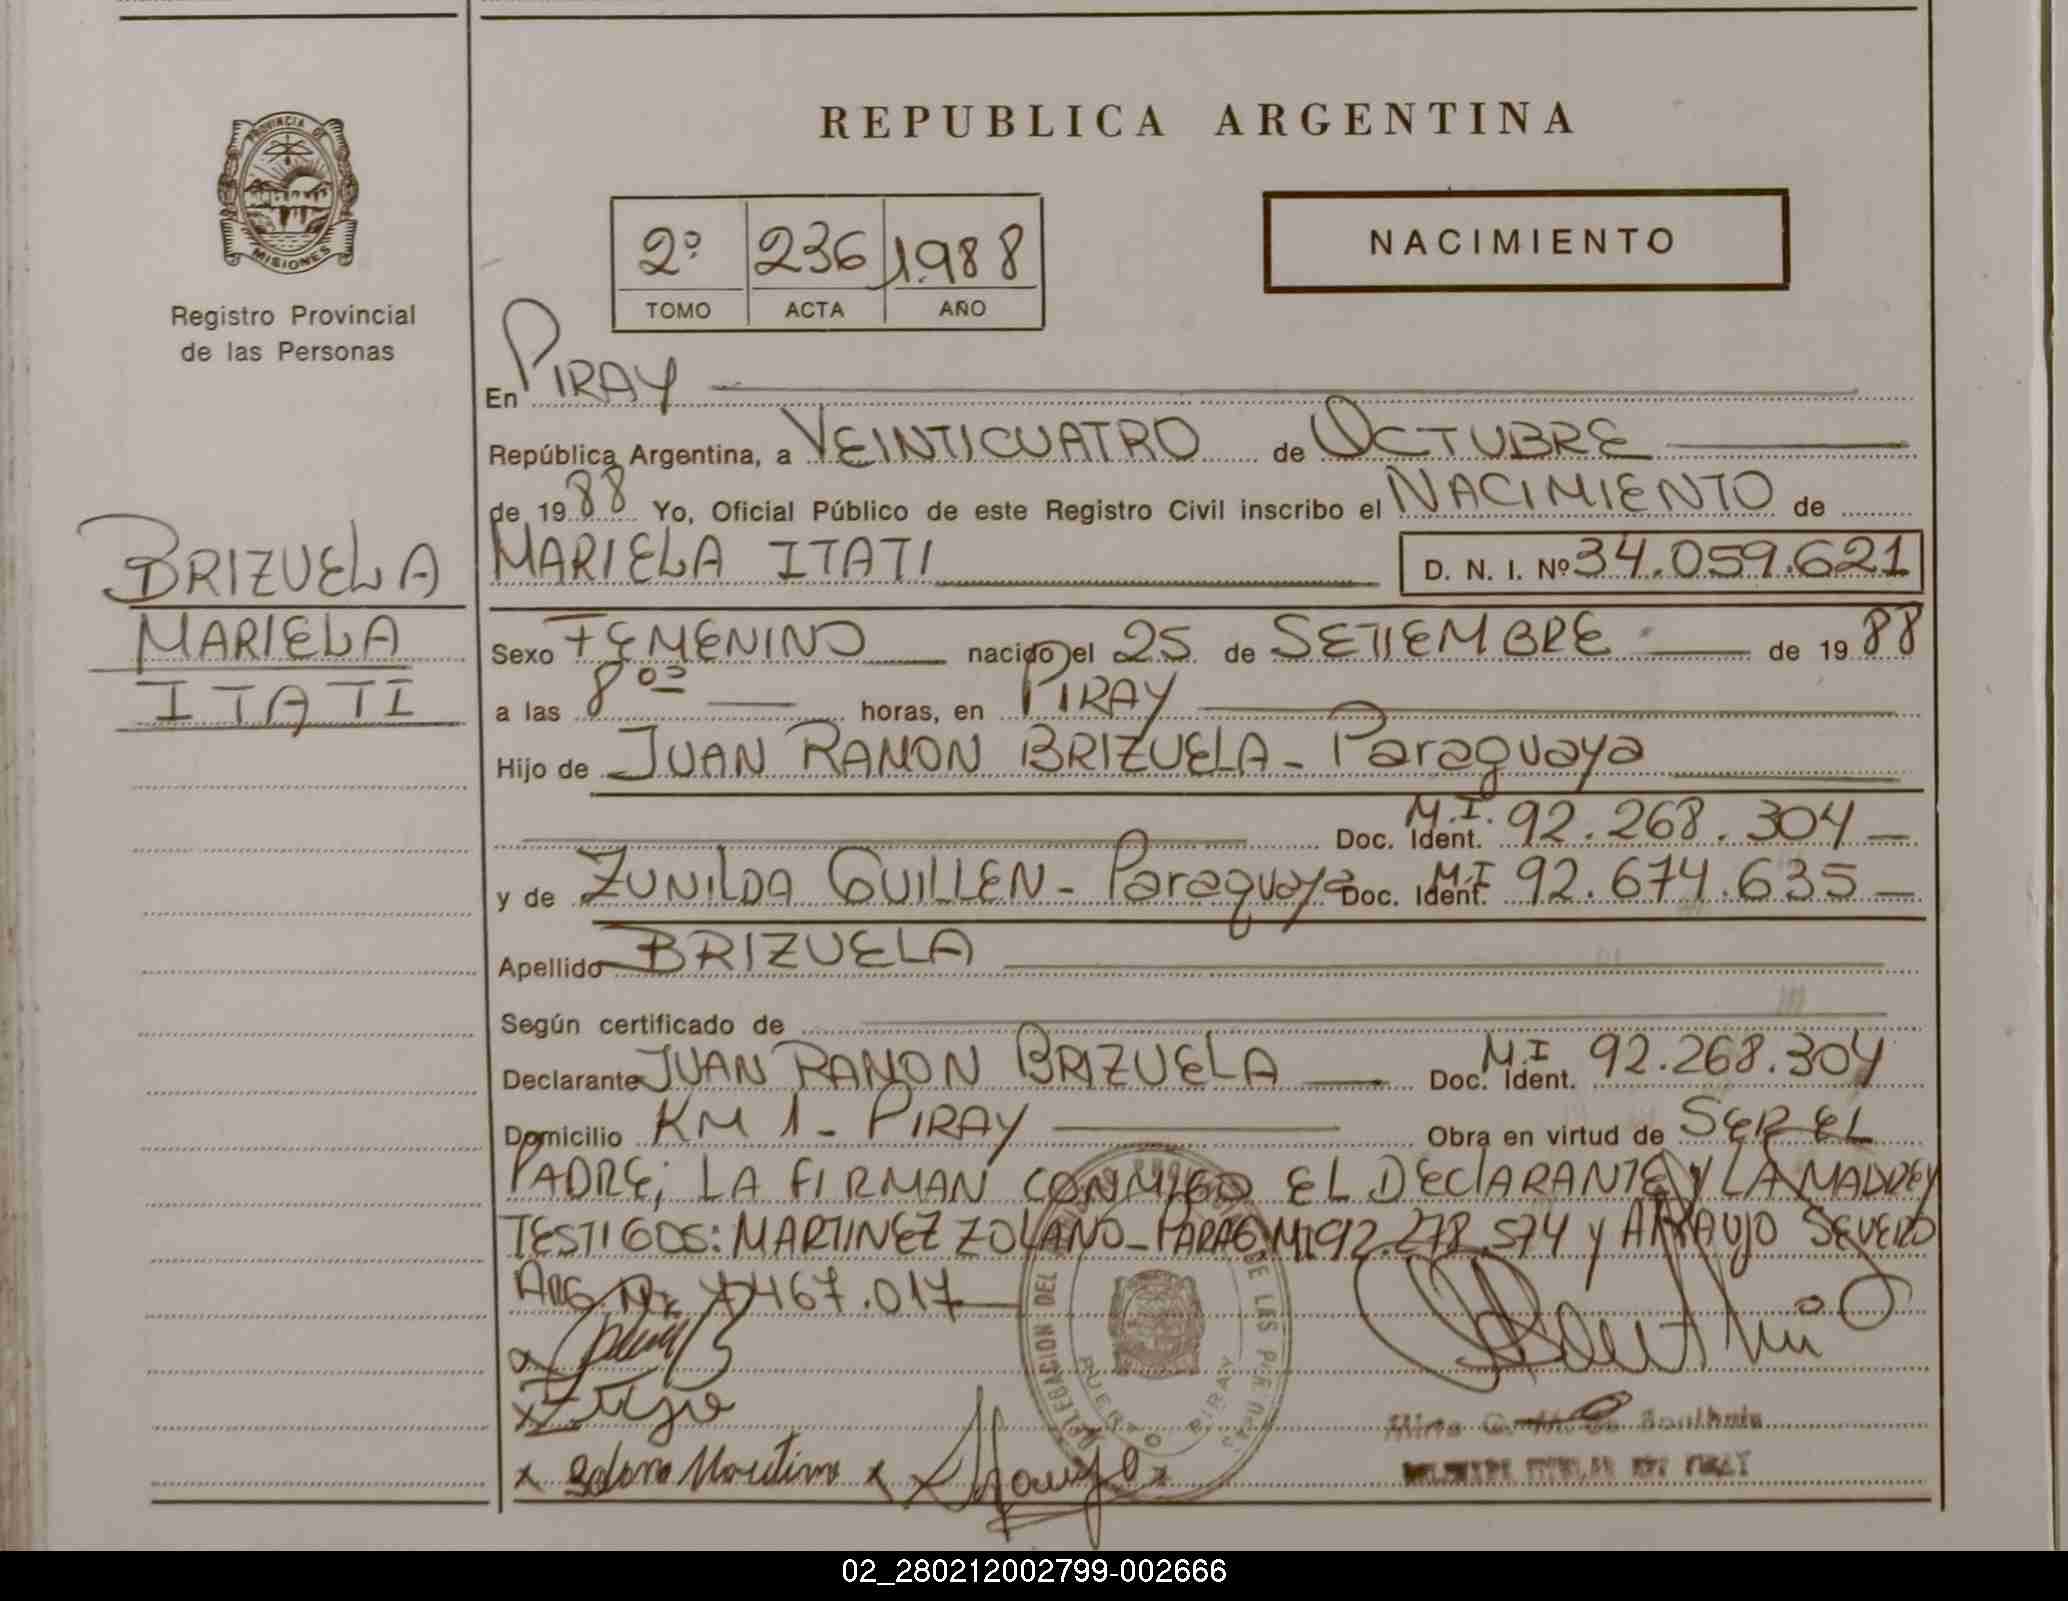 REPUBLICA ARGENTINA
PROVINCIA DE
MISIONES
Registro Provincial
de las Personas
2º 236 1988
TOMO ACTA AÑO
NACIMIENTO
BRIZUELA
MARIELA
ITATI
En PIRAY
República Argentina, a VEINTICUATRO de OCTUBRE
de 1988 Yo, Oficial Público de este Registro Civil inscribo el NACIMIENTO de
MARIELA ITATI D. N. I. Nº 34.059.621
Sexo FEMENINO nacido el 25 de SETIEMBRE de 1988
a las 8º⁰ horas, en PIRAY
Hijo de JUAN RAMON BRIZUELA - Paraguaya
Doc. Ident. M.I. 92.268.304
y de ZUNILDA GUILLEN - Paraguaya Doc. Ident. M.I 92.674.635
Apellido BRIZUELA
Según certificado de
Declarante JUAN RAMON BRIZUELA Doc. Ident. M.I 92.268.304
Domicilio KM 1 - PIRAY Obra en virtud de SER EL
PADRE; LA FIRMAN CONMIGO EL DECLARANTE Y LA MADRE Y
TESTIGOS: MARTINEZ ZOLANO - PARAG. MI 92.278.574 y ARAUJO SEVERO
ARG. 7.467.017
DELEGACION DEL DE LAS
PUERTO PIRAY
02_280212002799-002666